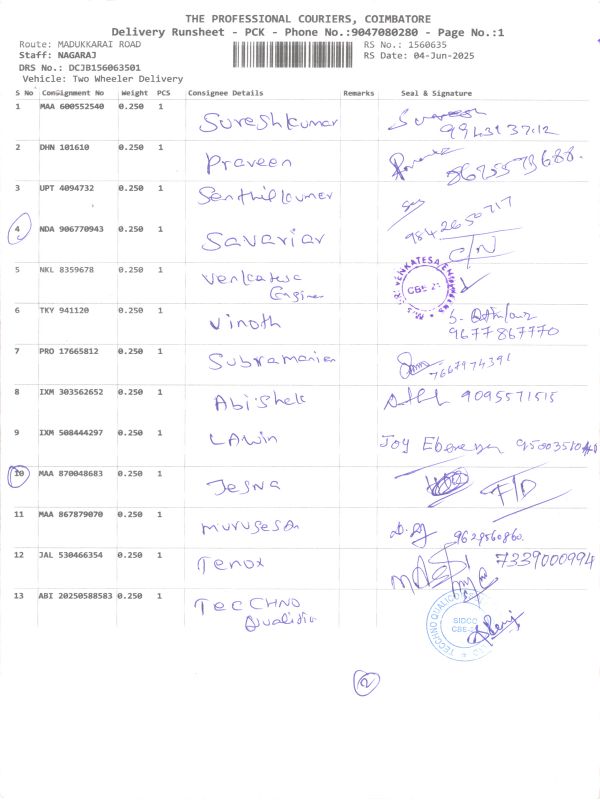 THE PROFESSIONAL COURIERS, COIMBATORE
Delivery Runsheet - PCK - Phone No.:9047080280 - Page No.:1
Route: MADUKKARAI ROAD RS No.: 1560635
Staff: NAGARAJ RS Date: 04-Jun-2025
DRS No.: DCJB156063501
Vehicle: Two Wheeler Delivery
S No Consignment No Weight PCS Consignee Details Remarks Seal & Signature
1 MAA 600552540 0.250 1 Sureshkumar Suresh
2 DHN 101610 0.250 1 Praveen
3 UPT 4094732 0.250 1 Senthilkumar
9842650717
4 NDA 906770943 0.250 1 Savariar C/N
5 NKL 8359678 0.250 1 Venkatesa
CBE-21
6 TKY 941120 0.250 1 Vinoth
9677867770
7 PRO 17665812 0.250 1 Subramanian 7667974391
8 IXM 303562652 0.250 1 Abishek 9095571515
9 IXM 508444297 0.250 1 LAwin Joy Ebenezer
10 MAA 870048683 0.250 1 Jesna F/D
11 MAA 867879070 0.250 1 Murugesan 9629560860
12 JAL 530466354 0.250 1 Tenox 7339000994
13 ABI 20250588583 0.250 1 TecCHNO
SIDCO
CBE-21
2